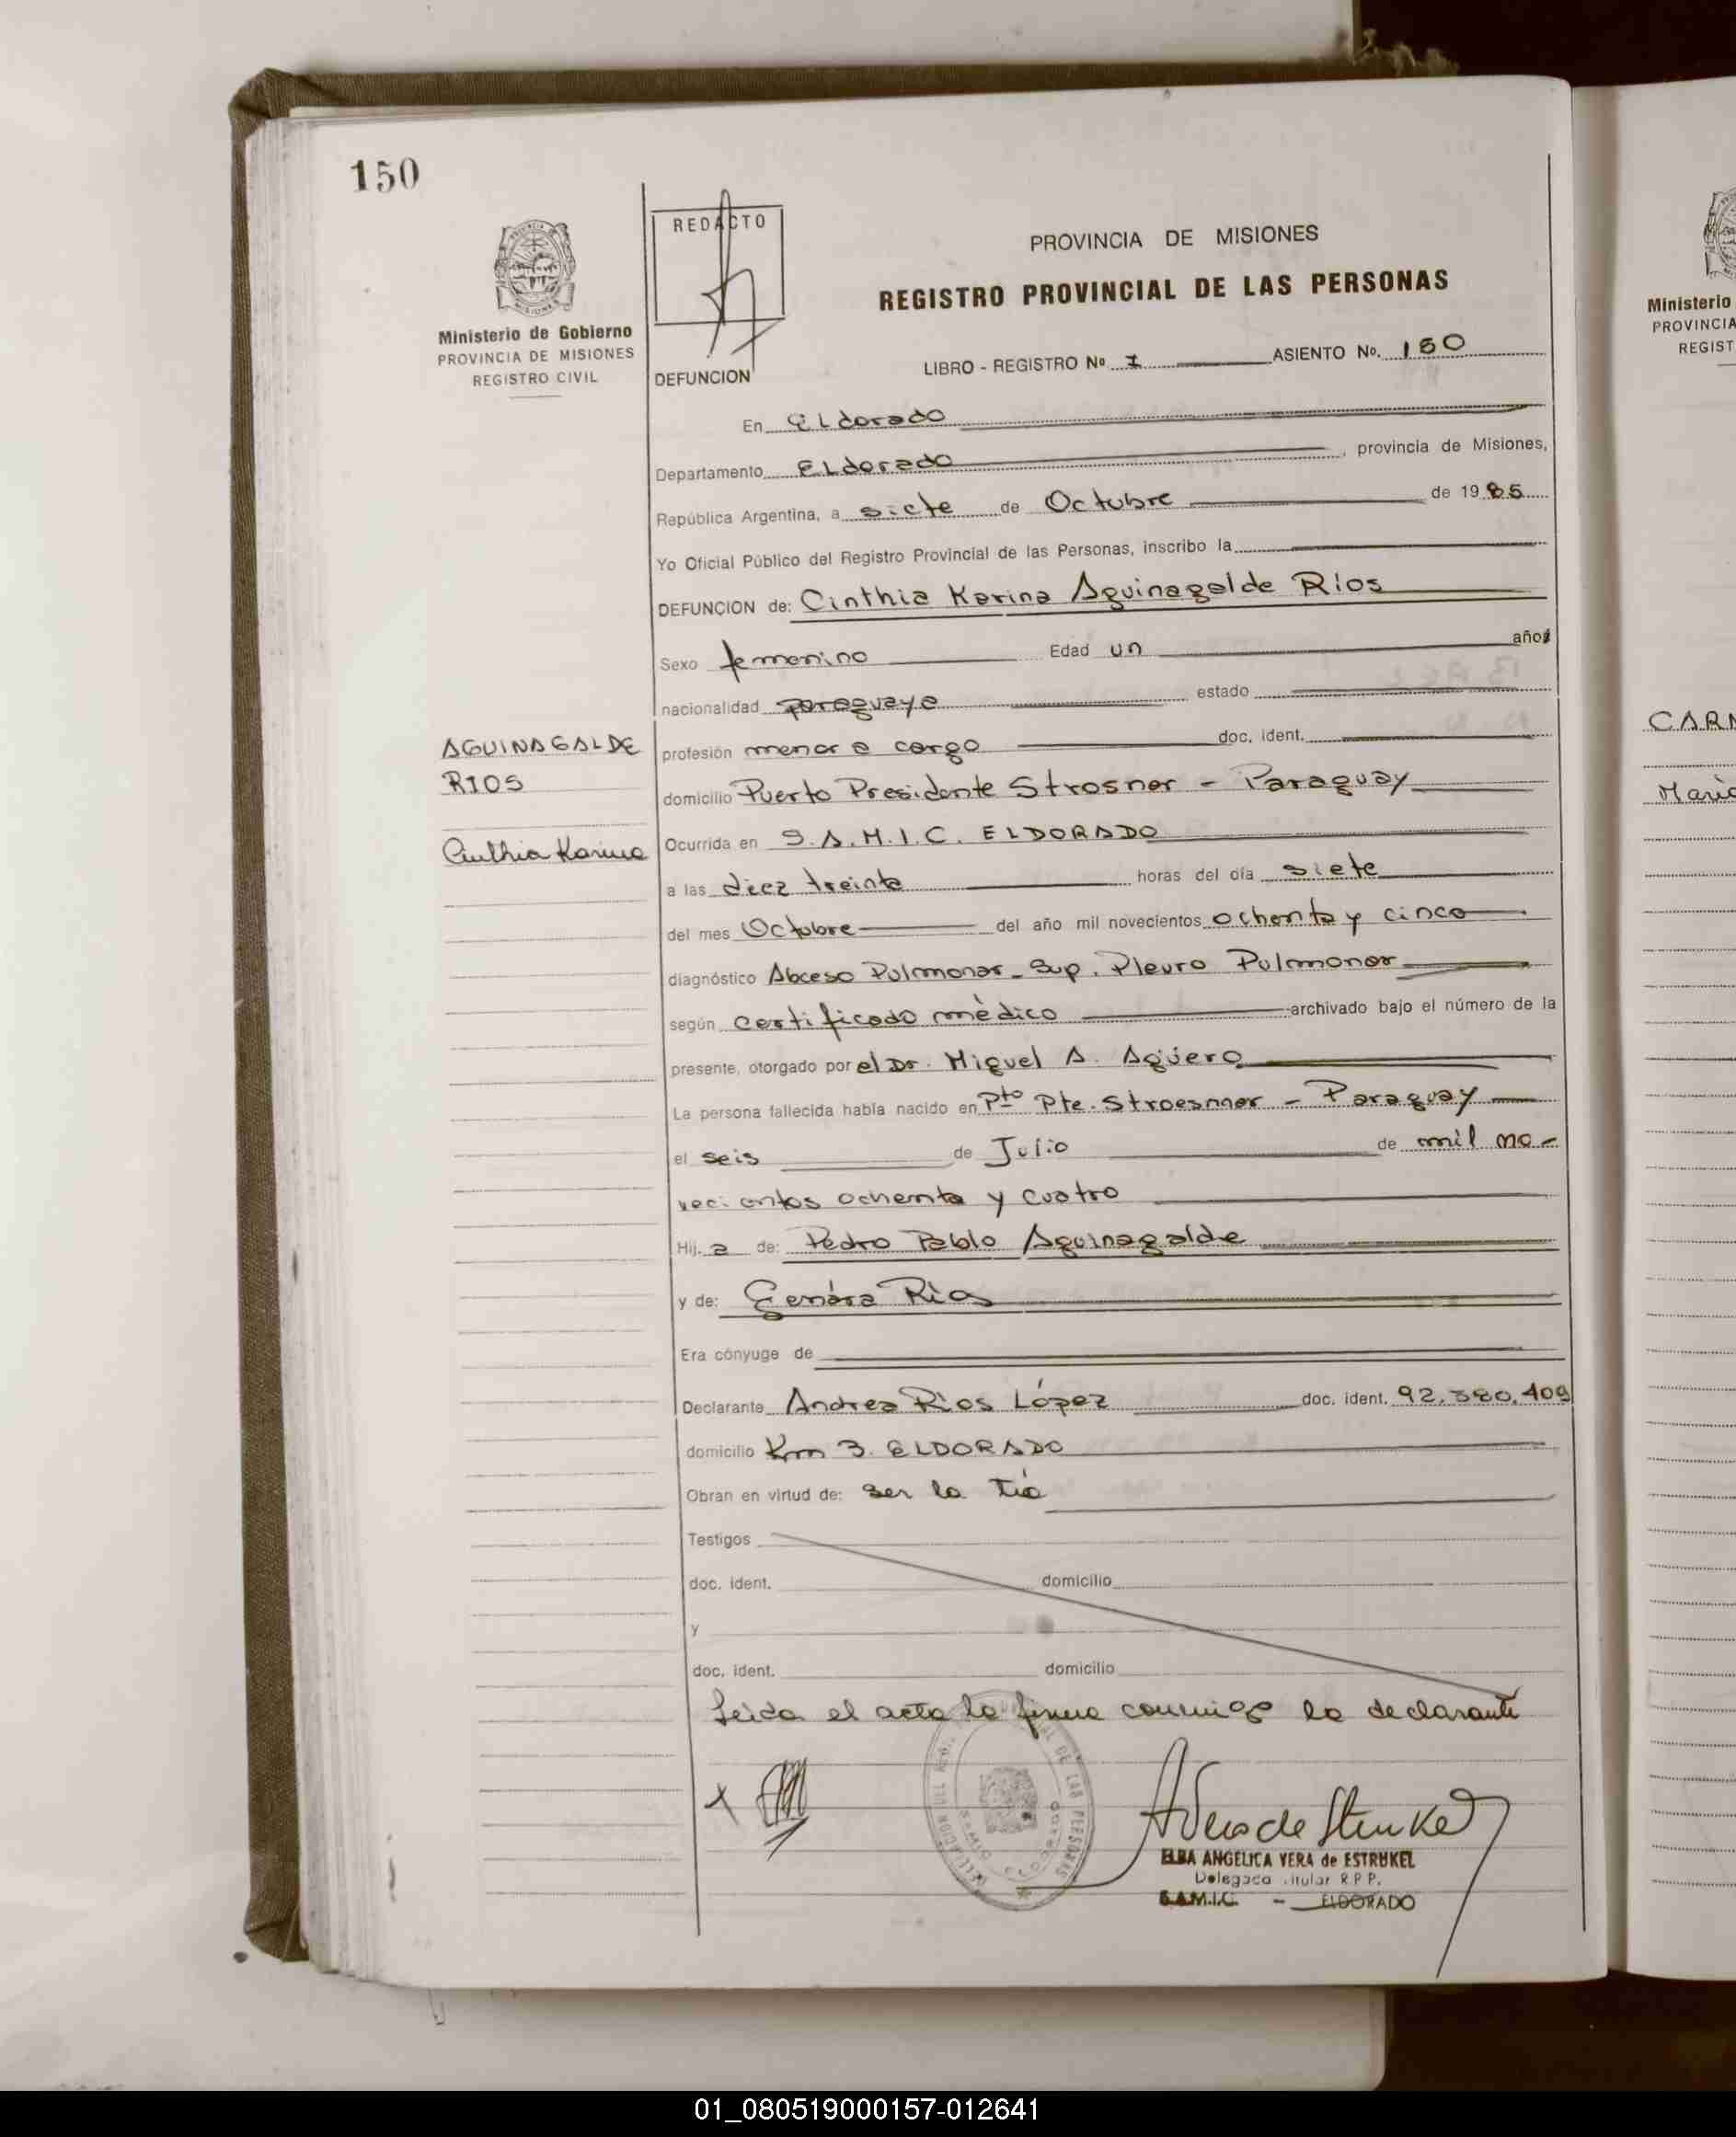 150
REDACTO
PROVINCIA DE MISIONES
REGISTRO PROVINCIAL DE LAS PERSONAS
Ministerio de Gobierno
PROVINCIA DE MISIONES
REGISTRO CIVIL
DEFUNCION
LIBRO - REGISTRO Nº 1 ASIENTO No. 150
En ELdorado
Departamento ELdorado, provincia de Misiones,
República Argentina, a siete de Octubre de 1985
Yo Oficial Público del Registro Provincial de las Personas, inscribo la
DEFUNCION de: Cinthia Karina Aguinagalde Rios
Sexo femenino Edad un año
nacionalidad paraguaya estado
AGUINAGALDE
RIOS
Cinthia Karina
profesión menor a cargo doc. ident.
domicilio Puerto Presidente Strosner - Paraguay
Ocurrida en S.A.M.I.C. ELDORADO
a las diez treinta horas del día siete
del mes Octubre del año mil novecientos ochenta y cinco
diagnóstico Abceso Pulmonar - Sup. Pleuro Pulmonar
según certificado mèdico archivado bajo el número de la
presente, otorgado por el Dr. Miguel A. Agüero
La persona fallecida había nacido en Pto Pte. Stroesnner - Paraguay
el seis de Julio de mil no-
vecientos ochenta y cuatro
Hija de: Pedro Pablo Aguinagalde
y de: Genára Rios
Era cónyuge de
Declarante Andrea Rios López doc. ident. 92.380.409
domicilio Km 3. ELDORADO
Obran en virtud de: ser la tía
Testigos
doc. ident. domicilio
y
doc. ident. domicilio
Leida el acta la firma conmigo la declarante
x
A Vera de Strukel
ELBA ANGELICA VERA de ESTRUKEL
Delegada Titular R.P.P.
S.A.M.I.C. - ELDORADO
Ministerio
PROVINCIA
REGIST
CARN
01_080519000157-012641